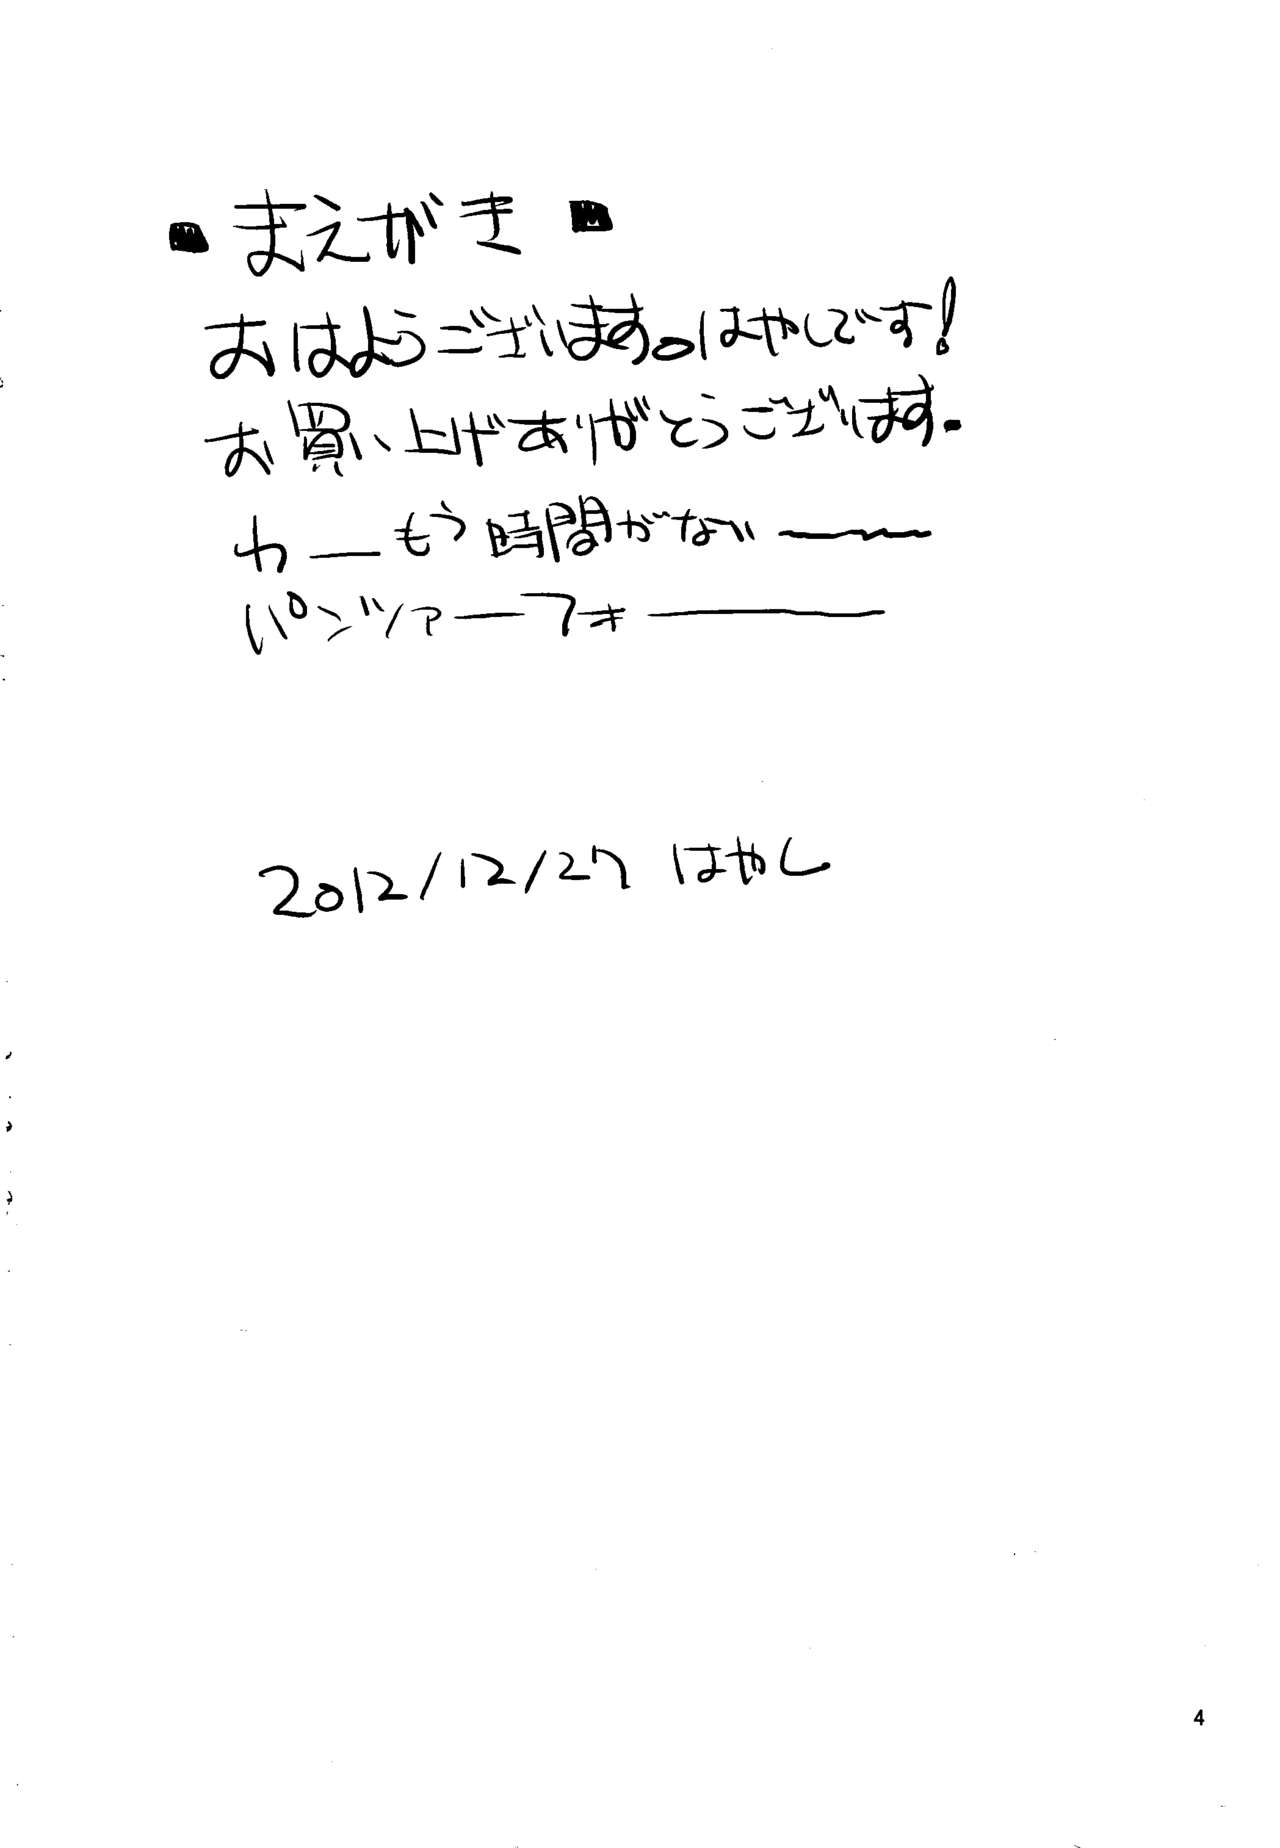 ■まえがき■
おはようございます。はやしです!
お買い上げありがとうございます。
わーもう時間がない――
パンツァーフォ――
2012/12/27 はやし
4